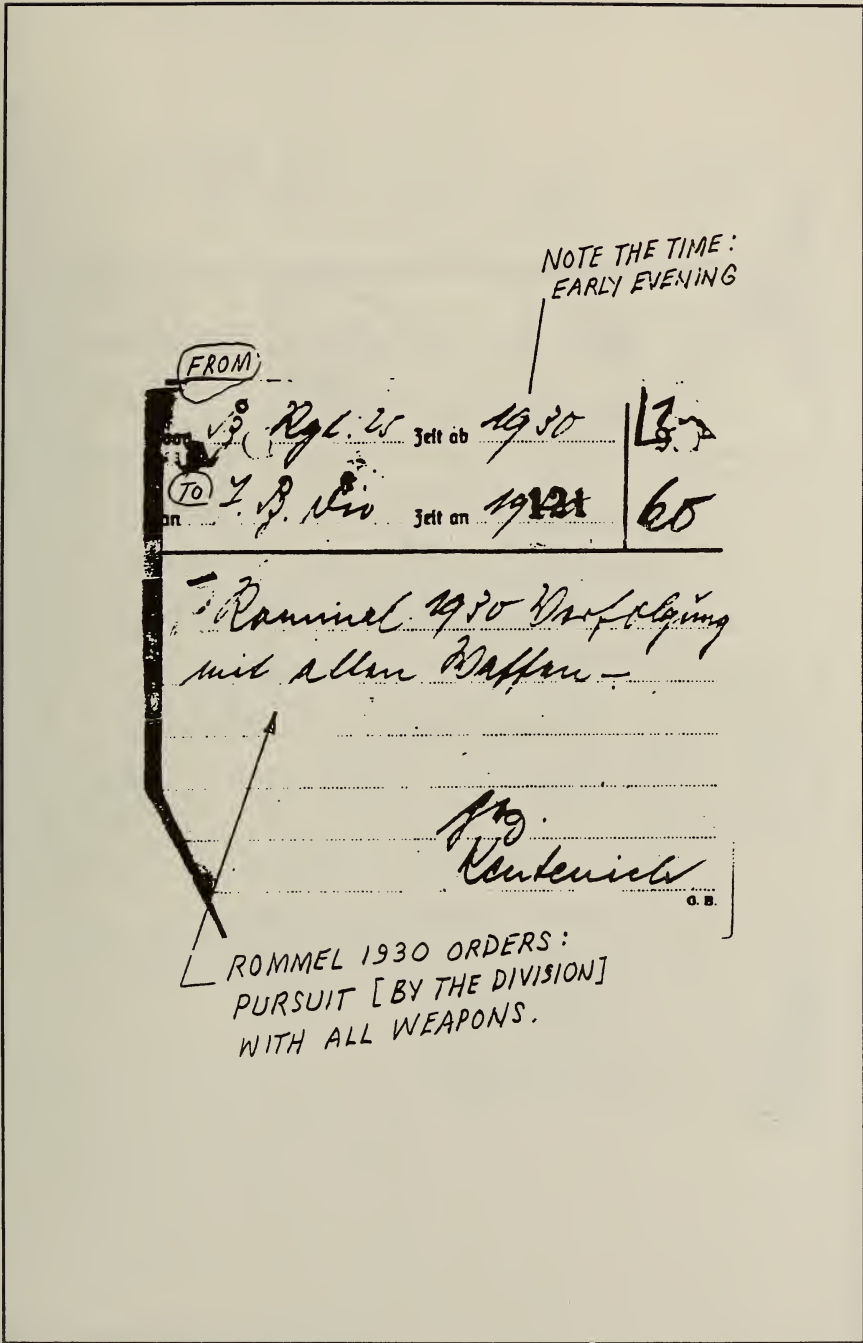 NOTE THE TIME:
EARLY EVENING
FROM
Rgt. 25 Zeit ab 1930
TO
an 7. P. Div Zeit an 19 60
Rommel 1930 Verfolgung
mit allen Waffen —
gez.
Kentenich
O. B.
ROMMEL 1930 ORDERS:
PURSUIT [BY THE DIVISION]
WITH ALL WEAPONS.